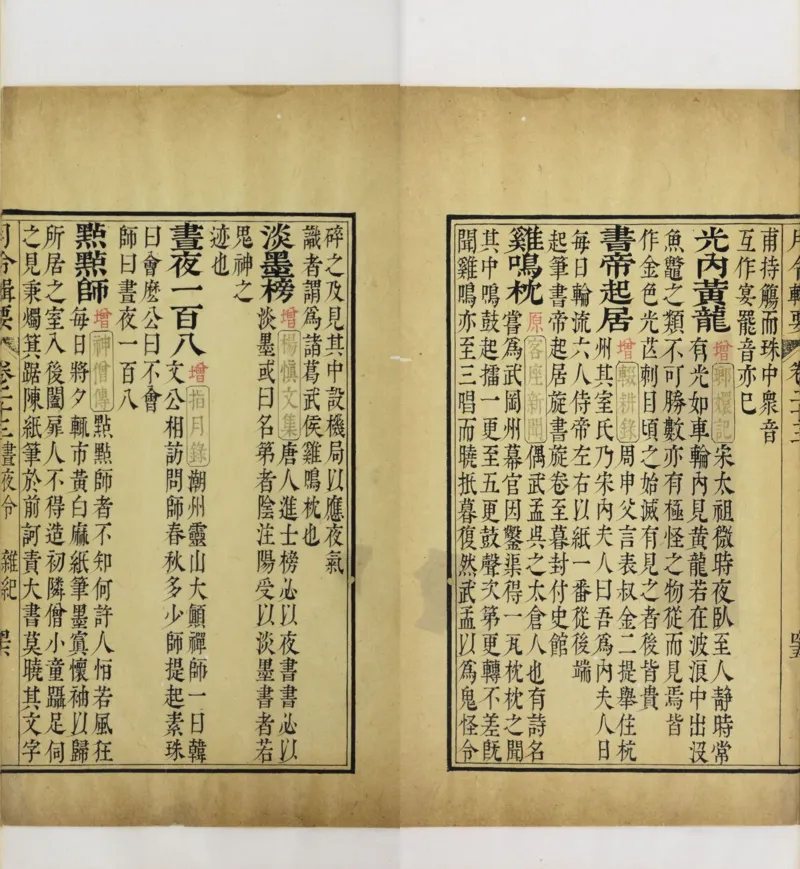 月令輯要 卷二十三
甫持觴而珠中衆音
互作宴罷音亦已
光內黃龍 增 宋太祖微時夜臥至人靜時常
有光如車輪內見黃龍若在波浪中出沒
魚鼈之類不可勝數亦有極怪之物從而見焉皆
作金色光芒刺目頃之始滅有見之者後皆貴
書帝起居 增 輟耕錄 周申父言表叔金二提舉住杭
州其室氏乃宋內夫人曰吾爲內夫人日
每日輪流六人侍帝左右以紙一番從後端
起筆書帝起居旋書旋卷至暮封付史館
雞鳴枕 原 客座新聞 偶武孟吳之太倉人也有詩名
嘗爲武岡州幕官因鑿渠得一瓦枕枕之聞
其中鳴鼓起擂一更至五更鼓聲次第更轉不差旣
聞雞鳴亦至三唱而曉抵暮復然武孟以爲鬼怪令
碎之及見其中設機局以應夜氣
識者謂爲諸葛武侯雞鳴枕也
淡墨榜 增 楊愼文集 唐人進士榜必以夜書書必以
淡墨或曰名第者陰注陽受以淡墨書者若
鬼神之
迹也
晝夜一百八 增 指月錄 潮州靈山大顚禪師一日韓
文公相訪問師春秋多少師提起素珠
曰會麼公曰不會
師曰晝夜一百八
點點師 增 神僧傳 點點師者不知何許人恒若風狂
每日將夕輒市黃白麻紙筆墨寘懷袖以歸
所居之室入後闔扉人不得造初隣僧小童躡足伺
之見秉燭箕踞陳紙筆於前訶責大書莫曉其文字
月令輯要 卷二十三 晝夜令 雜紀